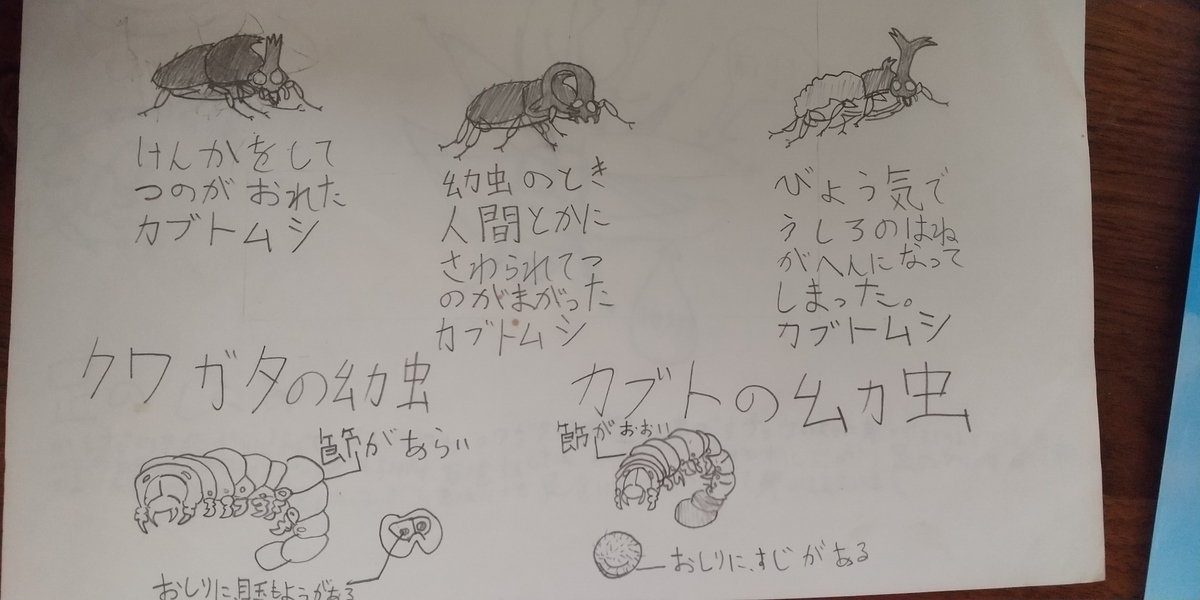 けんかをして
つのがおれた
カブトムシ
幼虫のとき
人間とかに
さわられてつ
のがまがった
カブトムシ
びょう気で
うしろのはね
がへんになって
しまった。
カブトムシ
クワガタの幼虫
節があらい
おしりに、目玉もようがある
カブトの幼虫
節がおおい
おしりに、すじがある